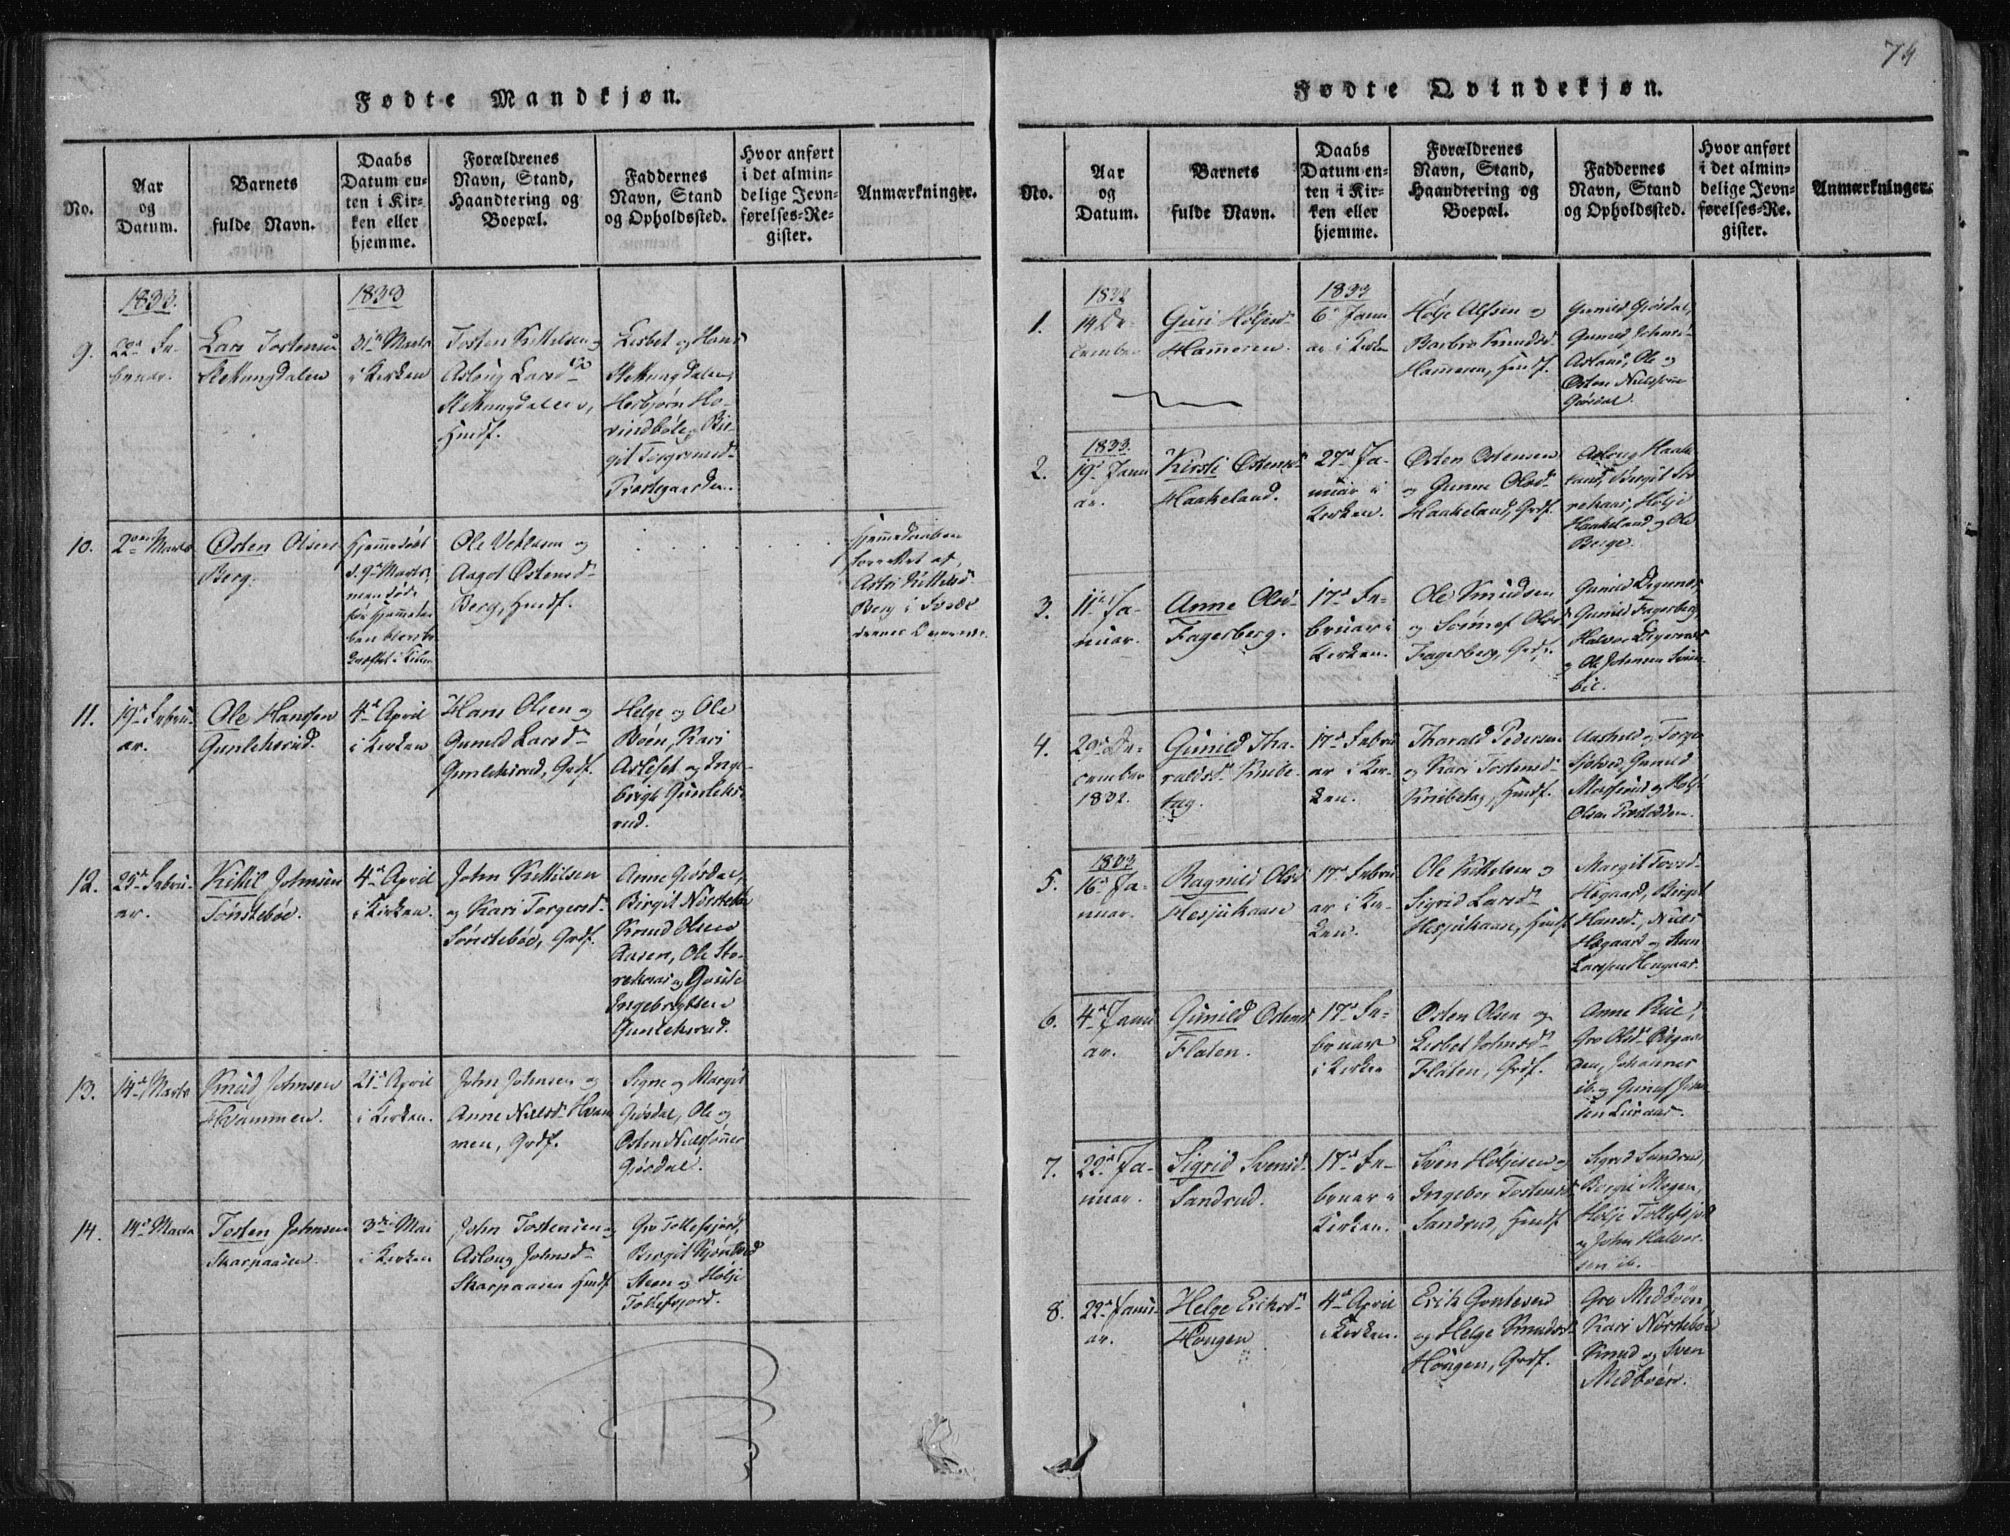 74
Fødte Mandkjøn.
No.
Aar
og
Datum.
Barnets
fulde Navn.
Daabs
Datum en-
ten i Kir-
ken eller
hjemme.
Forældrenes
Navn, Stand,
Haandtering og
Boepæl.
Faddernes
Navn, Stand
og Opholdssted.
Hvor anført
i det almin-
delige Jevn-
førelses-Re-
gister.
Anmærkninger.
1833.
1833
9.
22d Fe-
bruar.
Lars Tostensen
31te Marts
i Kirken
Tosten Kittelsen og
Asloug Larsd
Hmdf.
Lisbet og Hans
Herbjørn Ho-
vindbøle, Bir-
git Torgrimsd
10.
2den Marts
Østen Olsen
Berg.
Hjemmedøbt
d. 9d Marts,
men død
Ole Vetlesen og
Aagot Østensd
Berg, Hmdf.
Hjemmedaaben
forrettet af
Kittelsd
Berg i
11.
19d Febru-
ar.
Ole Hanssen
Gunleksrud.
4d April
i Kirken
Hans Olsen og
Gunild Larsd
Gunleksrud, Grdf.
Helge og Ole
Bøen, Kari
Aslefet og Inge-
brigt Gunleks-
rud.
12.
25d Febru-
ar.
Kittil Johnsen
Sønstebøe.
4d April
i Kirken.
John Kittilsen
og Kari Torgersd
Sønstebøe, Grdf.
Anne Gjøsdal,
Birgit Nørstebøe
Knud Olsen
Aasen, Ole Sto-
rekaas og Gonde
Ingebrigtsen
Gunleksrud.
13.
14d Marts
Knud Johnsen
Hvammen.
21d April
i Kirken.
John Johnsen og
Anne Nielsd Hvam-
men, Grdf.
Signe og Margit
Gjøsdal, Ole og
Østen Nielssønner
Gjøsdal.
14.
14d Marts
Tosten Johnsen
Skarpaasen
3die Mai
i Kirken
John Tostensen og
Asloug Johnsd
Skarpaasen Hmdf.
Gro Tollefsjord,
Birgit
Steen og Holje
Tollefsjord.
Fødte Qvindekjøn.
No.
Aar
og
Datum.
Barnets
fulde Navn.
Daabs
Datum en-
ten i Kir-
ken eller
hjemme.
Forældrenes
Navn, Stand,
Haandtering og
Boepæl.
Faddernes
Navn, Stand
og Opholdssted.
Hvor anført
i det almin-
delige Jevn-
førelses-Re-
gister.
Anmærkninger.
1832
1833
1.
14 De-
cember
Guri Høljesd
Hammeren.
6d Janu-
ar i Kirken
Hølje Alfsen og
Barbro Knudsd
Hammeren, Hmdf.
Gunild Gjøsdal,
Gunild Johnsd
Aasland, Ole og
Østen Nielssønner
Gjøsdal.
1833.
2.
19d Janu-
ar.
Kirsti Østensd
Haakeland.
27d Ja-
nuar i
Kirken.
Østen Østensen
og Gunne Olsd
Haakeland, Grdf.
Asloug Haake-
land, Birgit Sto-
rekaas, Hølje
Haakeland og Ole
Berge.
3.
11te Ja-
nuar.
Anne Olsd
Fagerberg.
17d Fe-
bruar i
Kirken.
Ole Knudsen
og Sønnef Olsd
Fagerberg, Grdf.
Gunild Digernes,
Gunild Fagerberg,
Halvor Digernes
og Ole Johnsen
4.
29d De-
cember
1832.
Gunild Tha-
raldsd Knibe-
tag.
17d Febru-
ar i Kir-
ken.
Tharald Pedersen
og Kari Tostensd
Knibetag, Hmdf.
Aashild og Torger
Gunild
og
Olsen
1833
5.
16d Ja-
nuar.
Ragnild Olsd
Hesjukaase
17d Febru-
ar i Kir-
ken.
Ole Kittelsen og
Sigrid Larsd
Hesjukaase, Hmdf
Margit Torsd
Høgaard, Birgit
Hansd, Niels
Høgaard og Sten
Larssen
6.
4d Janu-
ar.
Gunild Østensd
Flaten.
17d Fe-
bruar
i Kirken
Østen Olsen og
Lisbet Johnsd
Flaten, Grdf.
Anne Rue,
Gro Olsd Bøgaar-
den, Johannes
ib. og Gunuf
7.
22d Ja-
nuar.
Sigrid Svensd
Sandrud.
17d Fe-
bruar i
Kirken.
Sven Høljesen og
Ingebor Tostensd
Sandrud, Hmdf
Sigrid Sandrud,
Birgit Mogen,
Hølje Tollefsjord
og John Halvor-
sen ib.
8.
22d Janu-
ar.
Helge Eriksd
Hougen
4d April
i Kirken.
Erik Gontesen
og Helge Knudsd
Hougen, Grdf.
Gro Midbøen,
Kari Nørstebøe
Knud og Sven
Midbøen.